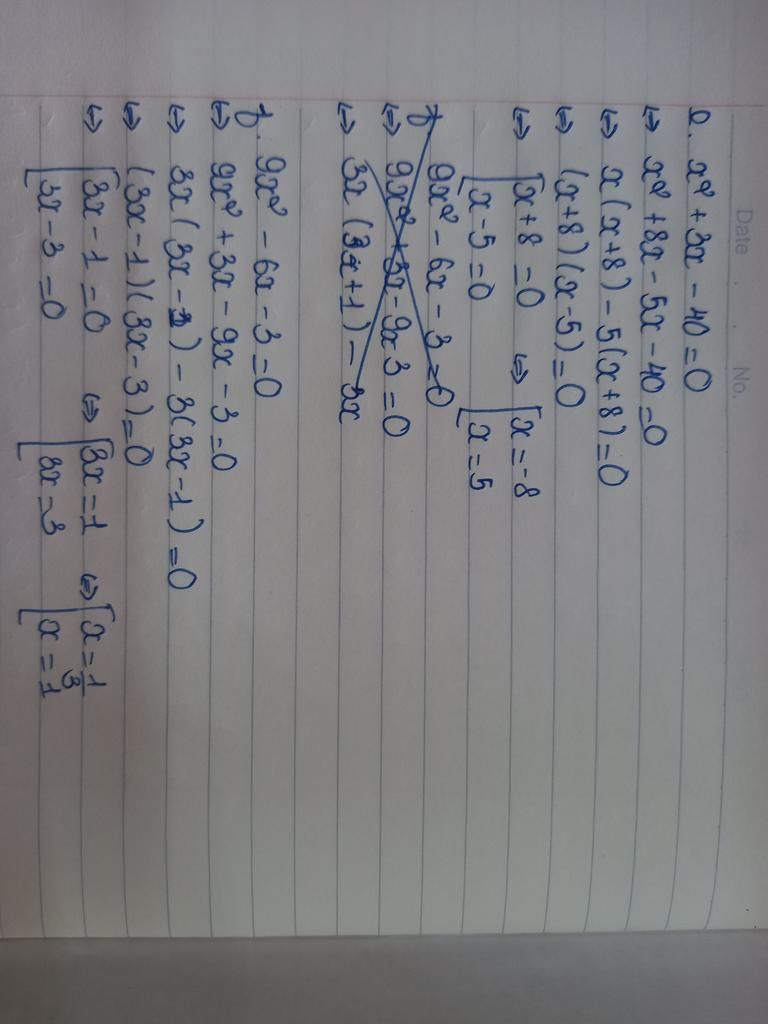 Date . . No.
e. x² + 3x - 40 = 0
⇔ x² + 8x - 5x - 40 = 0
⇔ x(x+8) - 5(x+8) = 0
⇔ (x+8)(x-5) = 0
⇔ [x+8 = 0 ⇔ [x = -8
[x-5 = 0 [x = 5
f. 9x² - 6x - 3 = 0
⇔ 9x² + 3x - 9x 3 = 0
⇔ 3x (3x+1) - 3x
f. 9x² - 6x - 3 = 0
⇔ 9x² + 3x - 9x - 3 = 0
⇔ 3x(3x - 1) - 3(3x-1) = 0
⇔ (3x-1)(3x-3) = 0
⇔ [3x-1 = 0 ⇔ [3x = 1 ⇔ [x = 1/3
[3x-3 = 0 [3x = 3 [x = 1